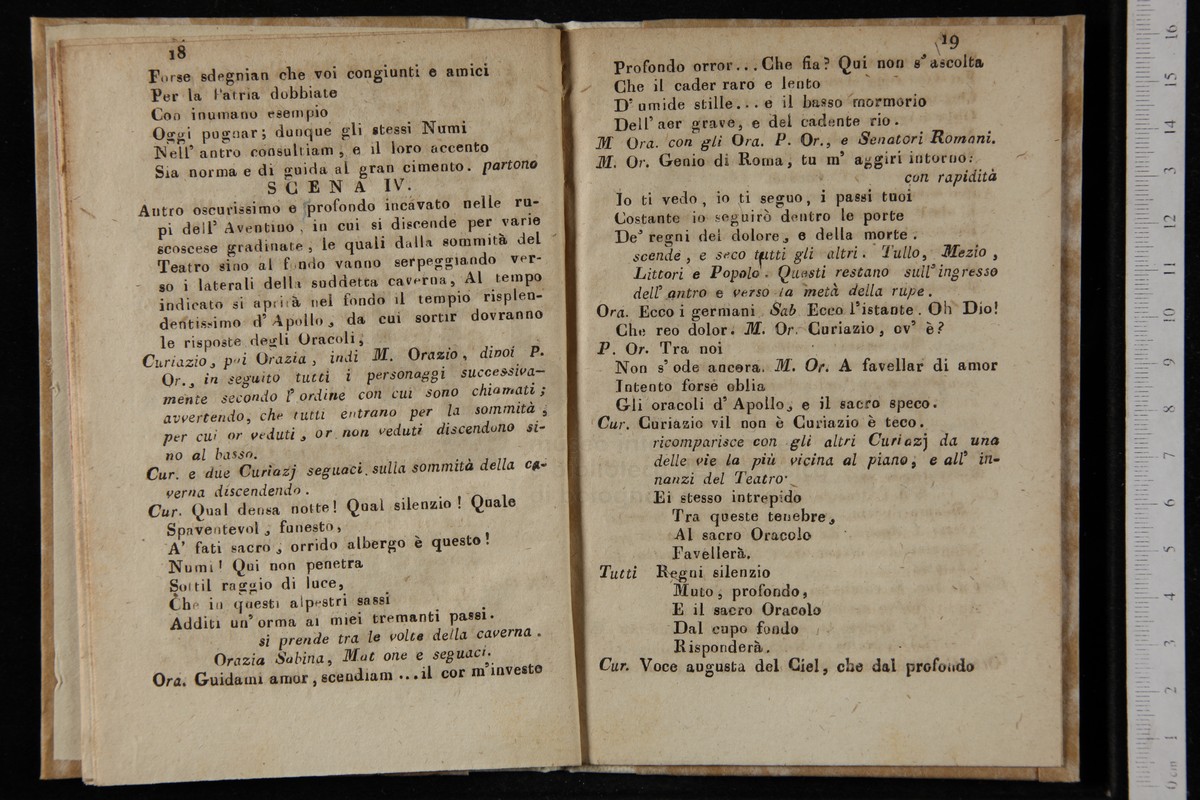 18
Forse sdegnian che voi congiunti e amici
Per la Patria dobbiate
Con inumano esempio
Oggi pugnar; dunque gli stessi Numi
Nell' antro consultiam, e il loro accento
Sia norma e di guida al gran cimento. partono
SCENA IV.
Antro oscurissimo e profondo incavato nelle ru-
pi dell' Aventino, in cui si discende per varie
scoscese gradinate, le quali dalla sommità del
Teatro sino al fondo vanno serpeggiando ver-
so i laterali della suddetta caverna, Al tempo
indicato si aprirà nel fondo il tempio risplen-
dentissimo d' Apollo, da cui sortir dovranno
le risposte degli Oracoli,
Curiazio, poi Orazia, indi M. Orazio, dipoi P.
Or., in seguito tutti i personaggi successiva-
mente secondo l' ordine con cui sono chiamati;
avvertendo, che tutti entrano per la sommità,
per cui or veduti, or non veduti discendono si-
no al basso.
Cur. e due Curiazj seguaci sulla sommità della ca-
verna discendendo.
Cur. Qual densa notte! Qual silenzio! Quale
Spaventevol, funesto,
A' fati sacro, orrido albergo è questo!
Numi! Qui non penetra
Sottil raggio di luce,
Che in questi alpestri sassi
Additi un' orma ai miei tremanti passi.
si prende tra le volte della caverna.
Orazia Sabina, Mat one e seguaci.
Ora. Guidami amor, scendiam ... il cor m'investe
19
Profondo orror... Che fia? Qui non s' ascolta
Che il cader raro e lento
D' umide stille... e il basso mormorio
Dell' aer grave, e del cadente rio.
M Ora. con gli Ora. P. Or., e Senatori Romani.
M. Or. Genio di Roma, tu m' aggiri intorno:
con rapidità
Io ti vedo, io ti seguo, i passi tuoi
Costante io seguirò dentro le porte
De' regni del dolore, e della morte.
scende, e seco tutti gli altri. Tullo, Mezio,
Littori e Popolo. Questi restano sull' ingresso
dell' antro e verso la metà della rupe.
Ora. Ecco i germani Sab Ecco l' istante. Oh Dio!
Che reo dolor. M. Or. Curiazio, ov' è?
P. Or. Tra noi
Non s' ode ancora. M. Or. A favellar di amor
Intento forse oblia
Gli oracoli d' Apollo, e il sacro speco.
Cur. Curiazio vil non è Curiazio è teco.
ricomparisce con gli altri Curiazj da una
delle vie la più vicina al piano, e all' in-
nanzi del Teatro
Ei stesso intrepido
Tra queste tenebre,
Al sacro Oracolo
Favellerà.
Tutti Regni silenzio
Muto, profondo,
E il sacro Oracolo
Dal cupo fondo
Risponderà.
Cur. Voce augusta del Ciel, che dal profondo
0 cm 1 2 3 4 5 6 7 8 9 10 11 12 13 14 15 16